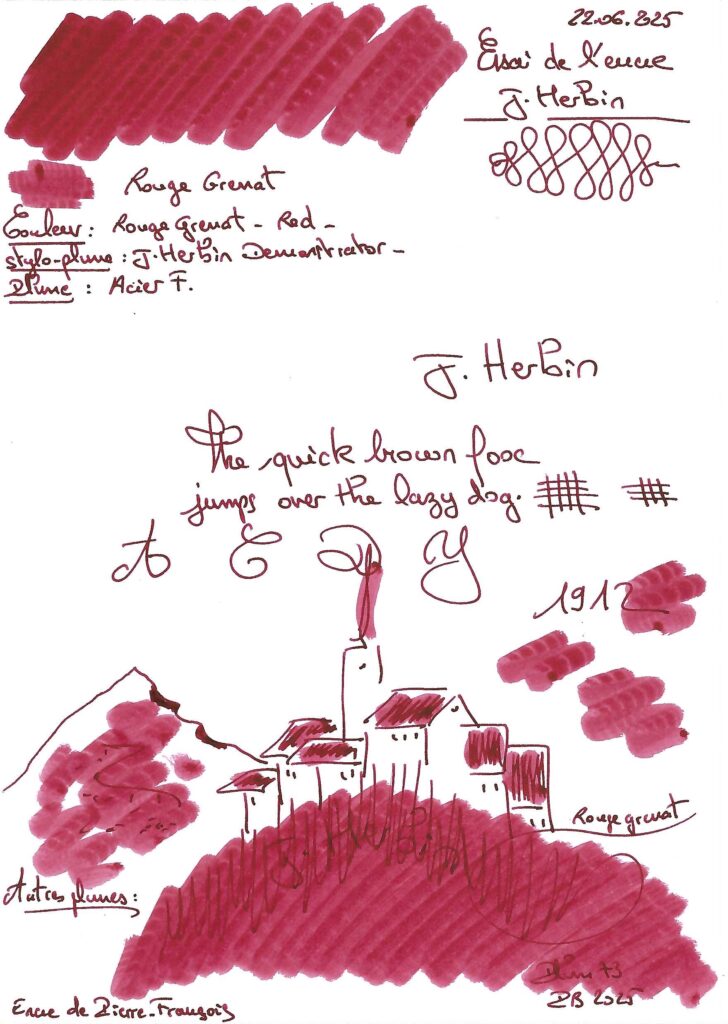 22.06.2025
Essai de l'encre
J. Herbin
Rouge Grenat
Couleur : Rouge Grenat - Red -
stylo-plume : J. Herbin Demonstrator -
Plume : Acier F.
J. Herbin
The quick brown fox
jumps over the lazy dog.
A E D Y
1912
Rouge grenat
J. Herbin
Autres plumes :
Plum 73
PB 2025
Encre de Pierre-François